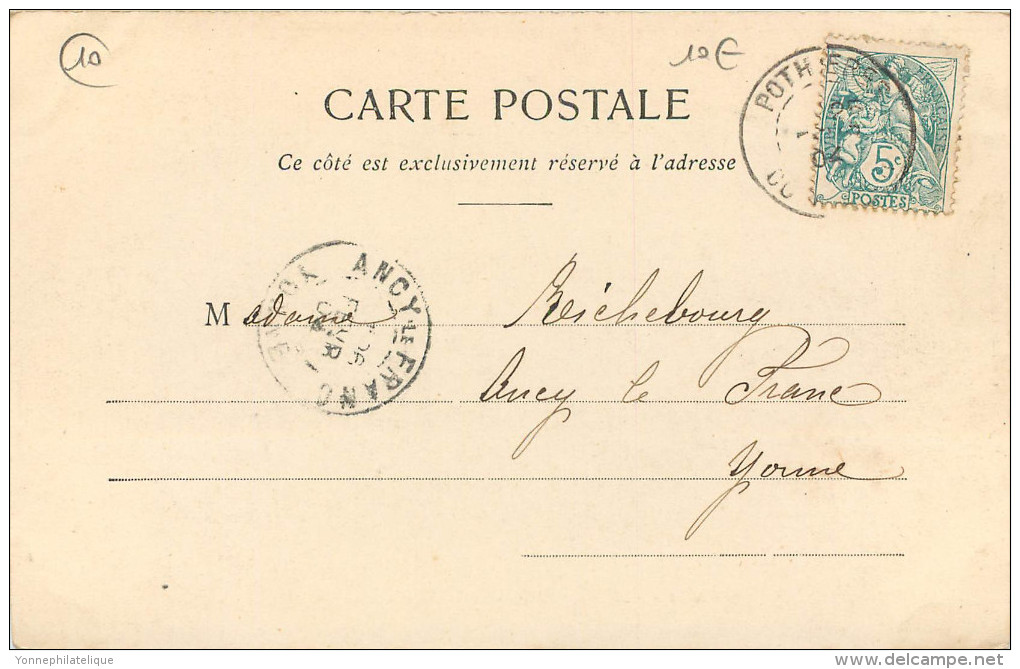 10
10€
POTHIERES
CARTE POSTALE
Ce côté est exclusivement réservé à l'adresse
5c
POSTES
ANCY-LE-FRANC
Madame Reichebourg
Ancy le Franc
Yonne
Yonnephilatelique
delcampe.net